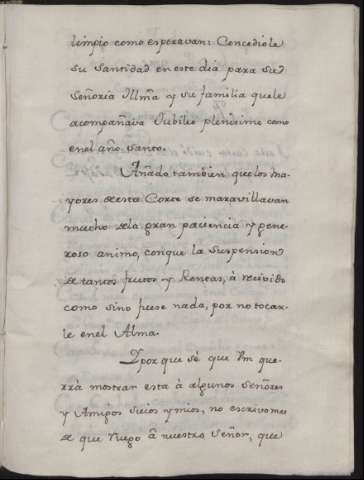 limpio como esperavan: Concediole
su Santidad en este dia para su
Señoria Illma y su familia que le
acompañava Jubileo plenissimo como
en el año santo.
Añado tambien que los ma-
yores de esta Corte se maravillavan
mucho de la gran paciencia y gene-
roso animo, con que la suspension
de tantos frutos y Rentas, à recivido
como si no fuese nada, por no tocar-
le en el Alma.
Y por que sé que Vm que-
rrà mostrar esta à algunos Señores
y Amigos suios y mios, no escrivo mas
de que ruego à nuestro Señor, que